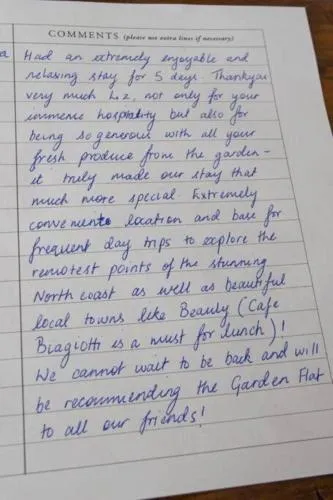 COMMENTS (please use extra lines if necessary)
a
Had an extremely enjoyable and
relaxing stay for 5 days. Thankyou
very much Liz, not only for your
immense hospitality but also for
being so generous with all your
fresh produce from the garden -
it truly made our stay that
much more special. Extremely
convenient location and base for
frequent day trips to explore the
remotest points of the stunning
North coast as well as beautiful
local towns like Beauly (Cafe
Biagiotti is a must for lunch)!
We cannot wait to be back and will
be recommending the Garden Flat
to all our friends!